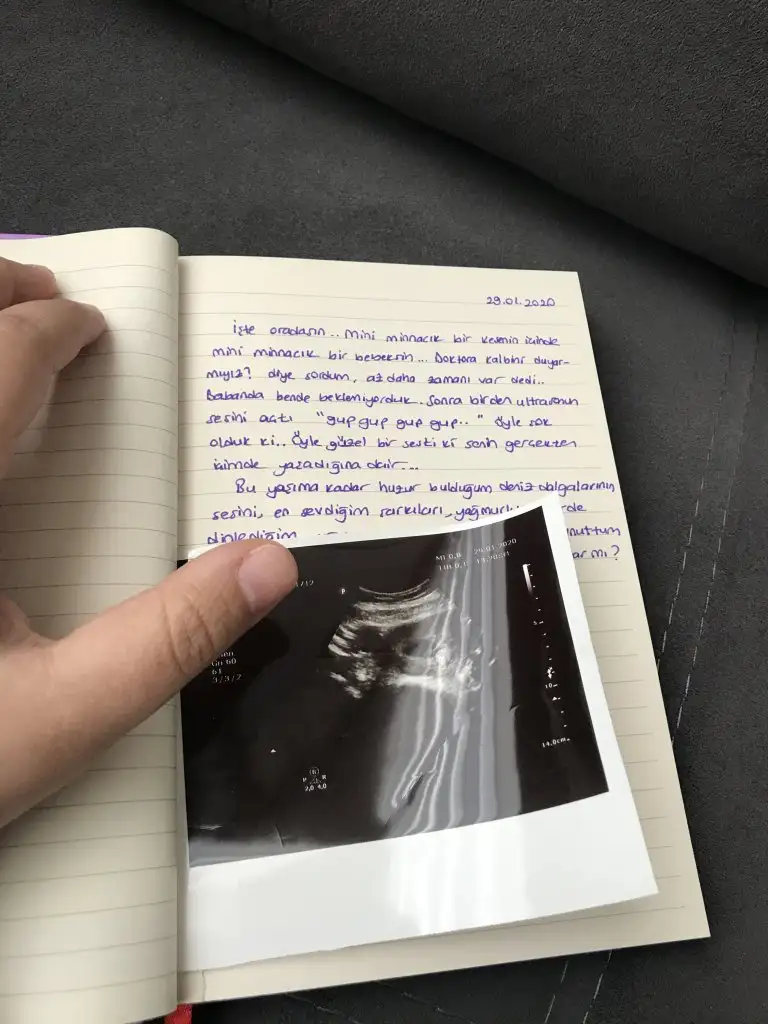 29.01.2020
İşte oradasın.. Mini minnacık bir kesenin içinde
mini minnacık bir bebeksin... Doktora kalbini duyar-
mıyız? diye sordum, az daha zamanı var dedi..
Babanda bende beklemiyorduk. Sonra birden ultrasonun
sesini açtı "gup gup gup gup.." Öyle şok
olduk ki.. Öyle güzel bir sesti ki senin gerçekten
içimde yaşadığına dair...
Bu yaşıma kadar huzur bulduğum deniz dalgalarının
sesini, en sevdiğim şarkıları, yağmurlu
dinlediğim unuttum
var mı?
MI 0.8 29.01.2020
/12
P
Gn 60
61
3/3/2
5
10
14.0cm
P R
2.0 4.0